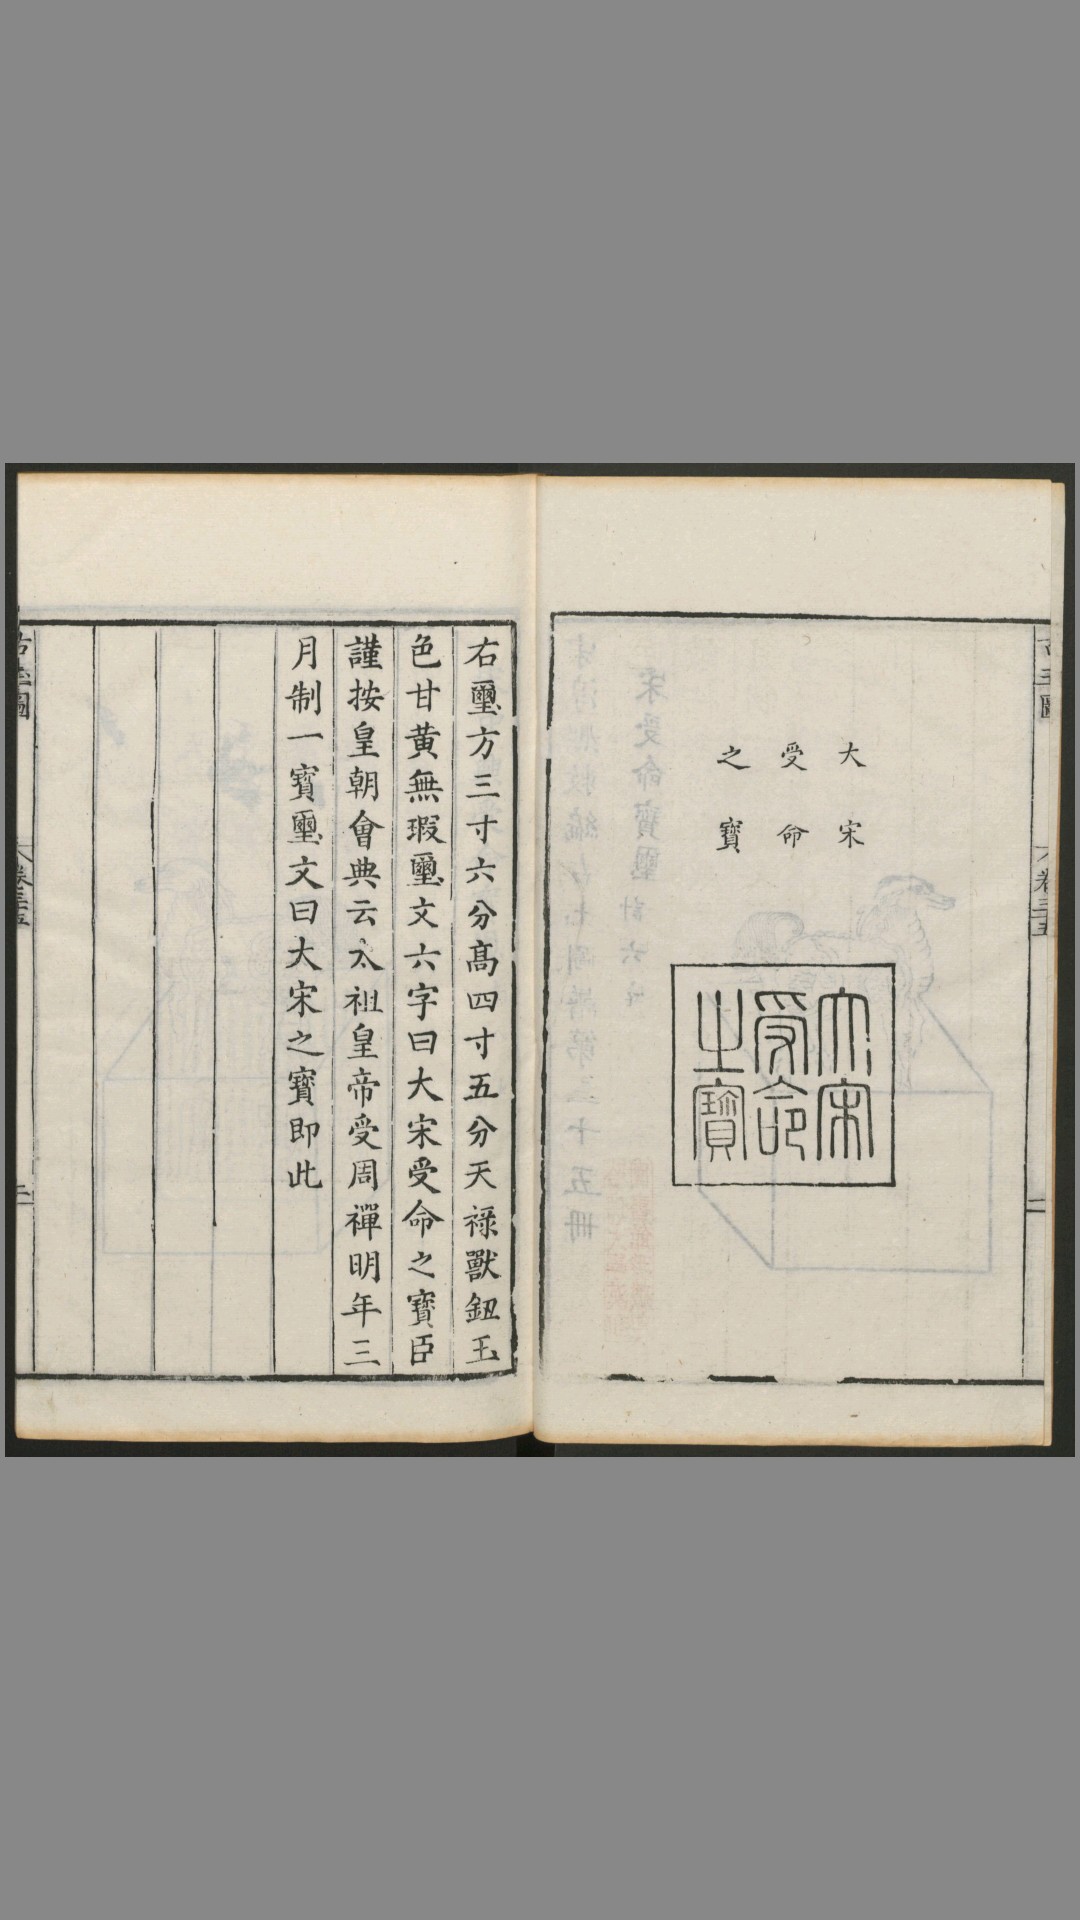 大宋
受命
之寶
大宋
受命
之寶
右璽方三寸六分高四寸五分天祿獸鈕玉
色甘黄無瑕璽文六字曰大宋受命之寶臣
謹按皇朝會典云太祖皇帝受周禪明年三
月制一寶璽文曰大宋之寶即此